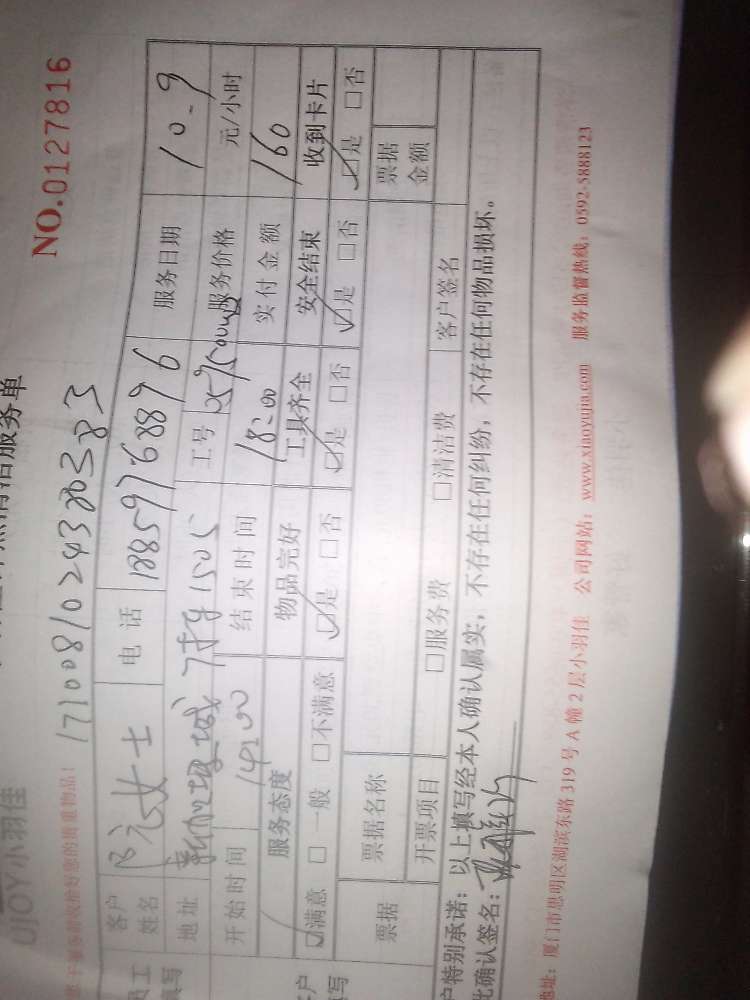 清洁服务单
NO.0127816
UJOY小羽佳
171008102438 383
客户姓名 阮女士 电话 18859768896 服务日期 10.9
地址 新加坡城 1505 工号 服务价格 元/小时
开始时间 14:00 结束时间 18:00 实付金额 160
服务态度 物品完好 工具齐全 安全结束 收到卡片
☑满意 □一般 □不满意 ☑是 □否 ☑是 □否 ☑是 □否 ☑是 □否
票据 票据名称 票据金额
开票项目 □服务费 □清洁费 客户签名
户特别承诺：以上填写经本人确认属实，不存在任何纠纷，不存在任何物品损坏。
此确认签名：
地址：厦门市思明区湖滨东路 319 号 A 幢 2 层小羽佳 公司网站：www.xiaoyujia.com 服务监督热线：0592-5888123